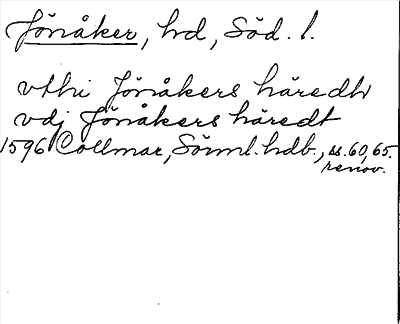 Jönåker, hd, Söd. l.
vthi Jönåkers häredh
vdj Jönåkers häredt
1596 Collmar, Sörml. hdb., ss. 60, 65.
renov.